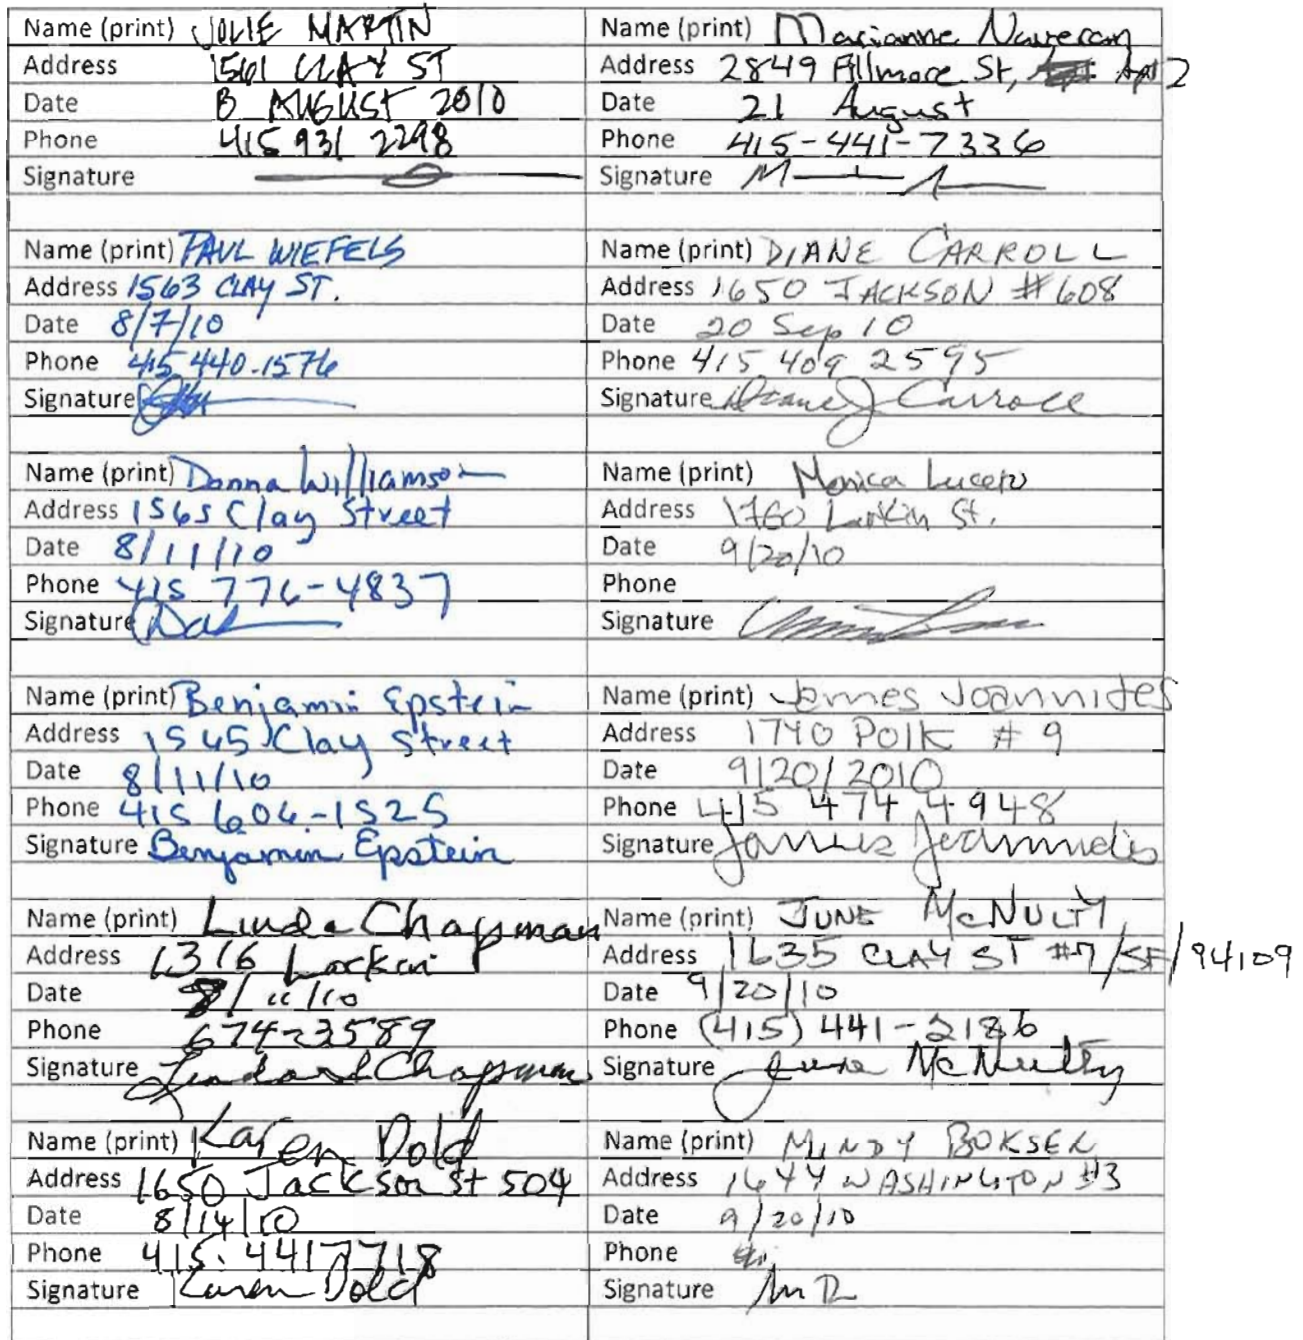 Name (print) JOLIE MARTIN
Address 1561 CLAY ST
Date 8 AUGUST 2010
Phone 415 931 2298
Signature
Name (print) PAUL WIEFELS
Address 1563 CLAY ST.
Date 8/7/10
Phone 415 440.1576
Signature
Name (print) Donna Williamson
Address 1565 Clay Street
Date 8/11/10
Phone 415 776-4837
Signature
Name (print) Benjamin Epstein
Address 1545 Clay Street
Date 8/11/10
Phone 415 606-1525
Signature Benjamin Epstein
Name (print) Linda Chapman
Address 1316 Larkin
Date 8/11/10
Phone 674-3589
Signature Chapman
Name (print) Karen Dold
Address 1650 Jackson St 504
Date 8/14/10
Phone 415. 441 7718
Signature Karen Dold
Name (print) Marianne
Address 2849 Fillmore St, Apt 2
Date 21 August
Phone 415-441-7336
Signature
Name (print) DIANE CARROLL
Address 1650 JACKSON #608
Date 20 Sep 10
Phone 415 409 2595
Signature Diane J Carroll
Name (print) Monica Lucero
Address 1760 Larkin St.
Date 9/20/10
Phone
Signature
Name (print) James Joannides
Address 1740 Polk # 9
Date 9/20/2010
Phone 415 474 4948
Signature James Joannides
Name (print) JUNE McNULTY
Address 1635 CLAY ST #7/SF/94109
Date 9/20/10
Phone (415) 441-2186
Signature June McNulty
Name (print) MINDY BOKSER
Address 1644 WASHINGTON #3
Date 9/20/10
Phone
Signature